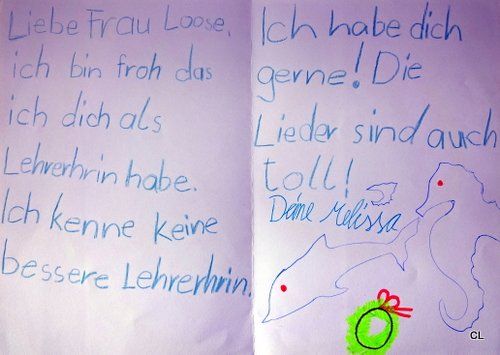 Liebe Frau Loose,
ich bin froh das
ich dich als
Lehrerhrin habe.
Ich kenne keine
bessere Lehrerhrin.
Ich habe dich
gerne! Die
Lieder sind auch
toll!
Deine Melissa
CL